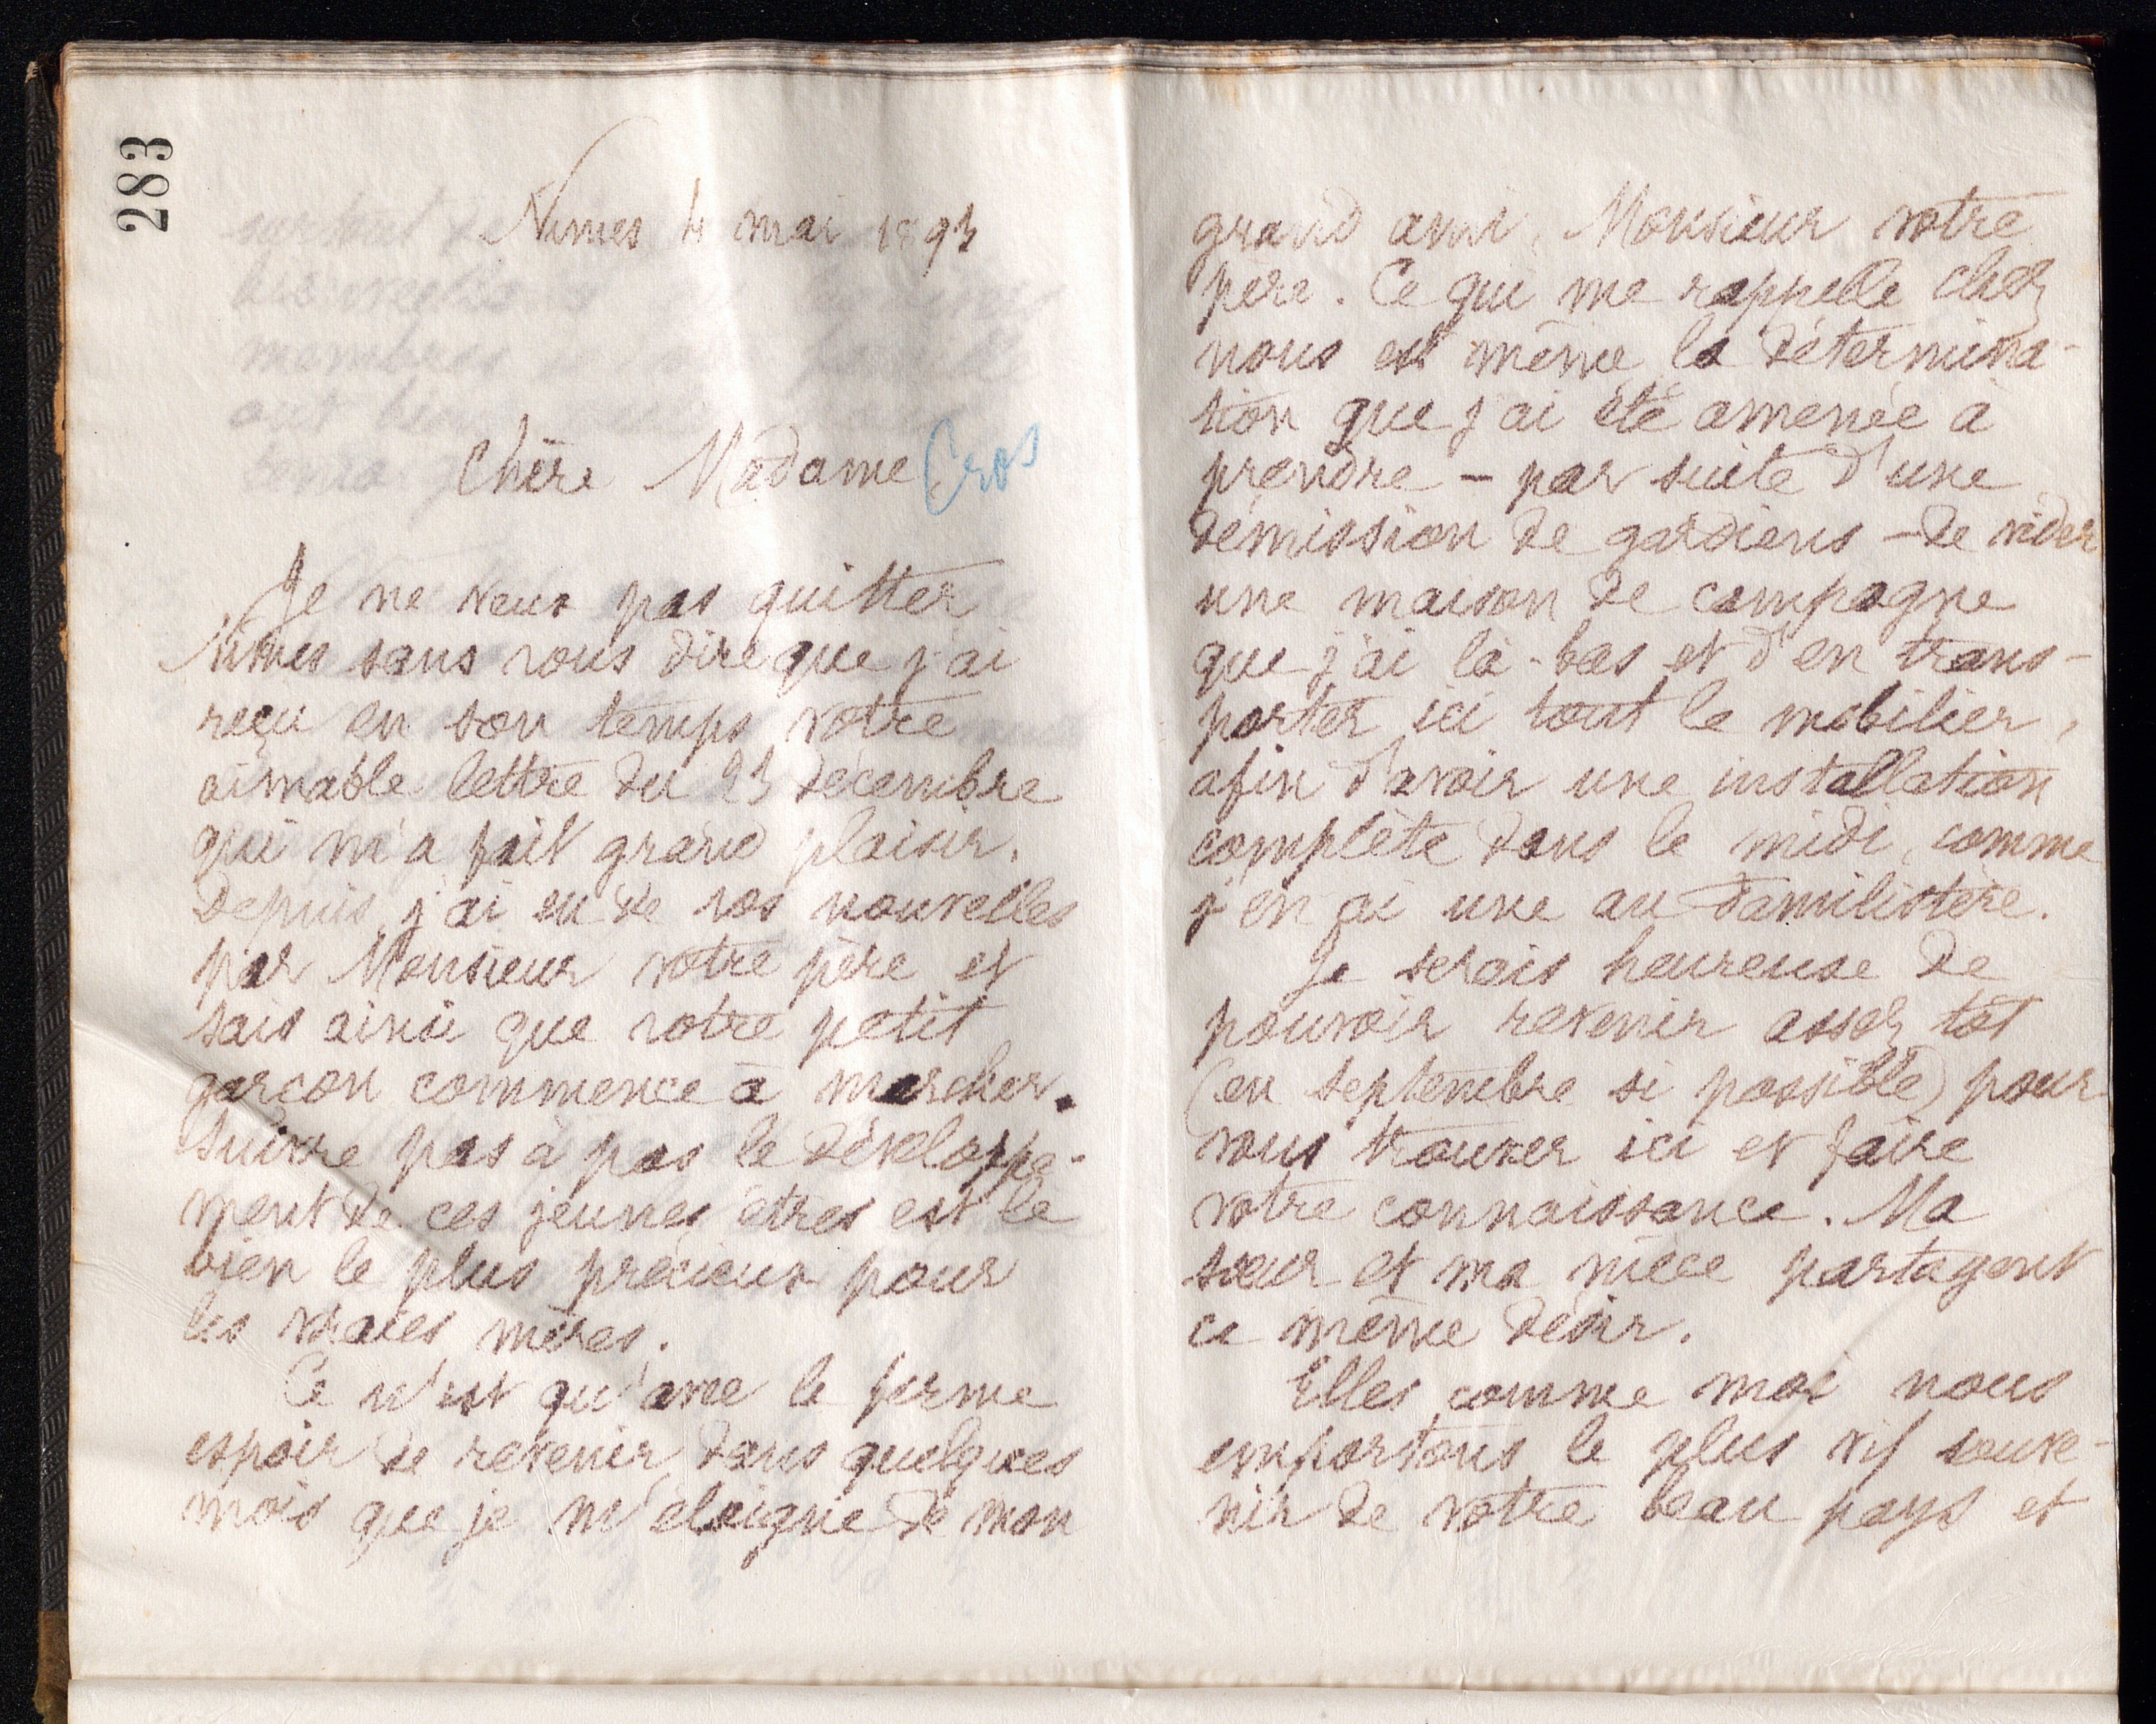 283
Nimes 4 mai 1893
Chère Madame Cros
Je ne veux pas quitter
Nimes sans vous dire que j'ai
reçu en son temps votre
aimable lettre du 23 décembre
qui m'a fait grand plaisir.
Depuis, j'ai eu de vos nouvelles
par Monsieur votre père et
sais ainsi que votre petit
garçon commence à marcher.
Suivre pas à pas le développe-
ment de ces jeunes êtres est le
bien le plus précieux pour
les vraies mères.
Ce n'est qu'avec le ferme
espoir de revenir dans quelques
mois que je m'éloigne de mon
grand ami, Monsieur votre
père. Ce qui me rappelle chez
nous est même la détermina-
tion que j'ai été amenée à
prendre - par suite d'une
démission de gardiens - de vider
une maison de campagne
que j'ai là-bas et d'en trans-
porter ici tout le mobilier,
afin d'avoir une installation
complète dans le midi, comme
j'en ai une au Familistère.
Je serais heureuse de
pouvoir revenir assez tôt
(en septembre si possible) pour
vous trouver ici et faire
votre connaissance. Ma
sœur et ma nièce partagent
ce même désir.
Elles comme moi nous
emportons le plus vif souve-
nir de votre beau pays et